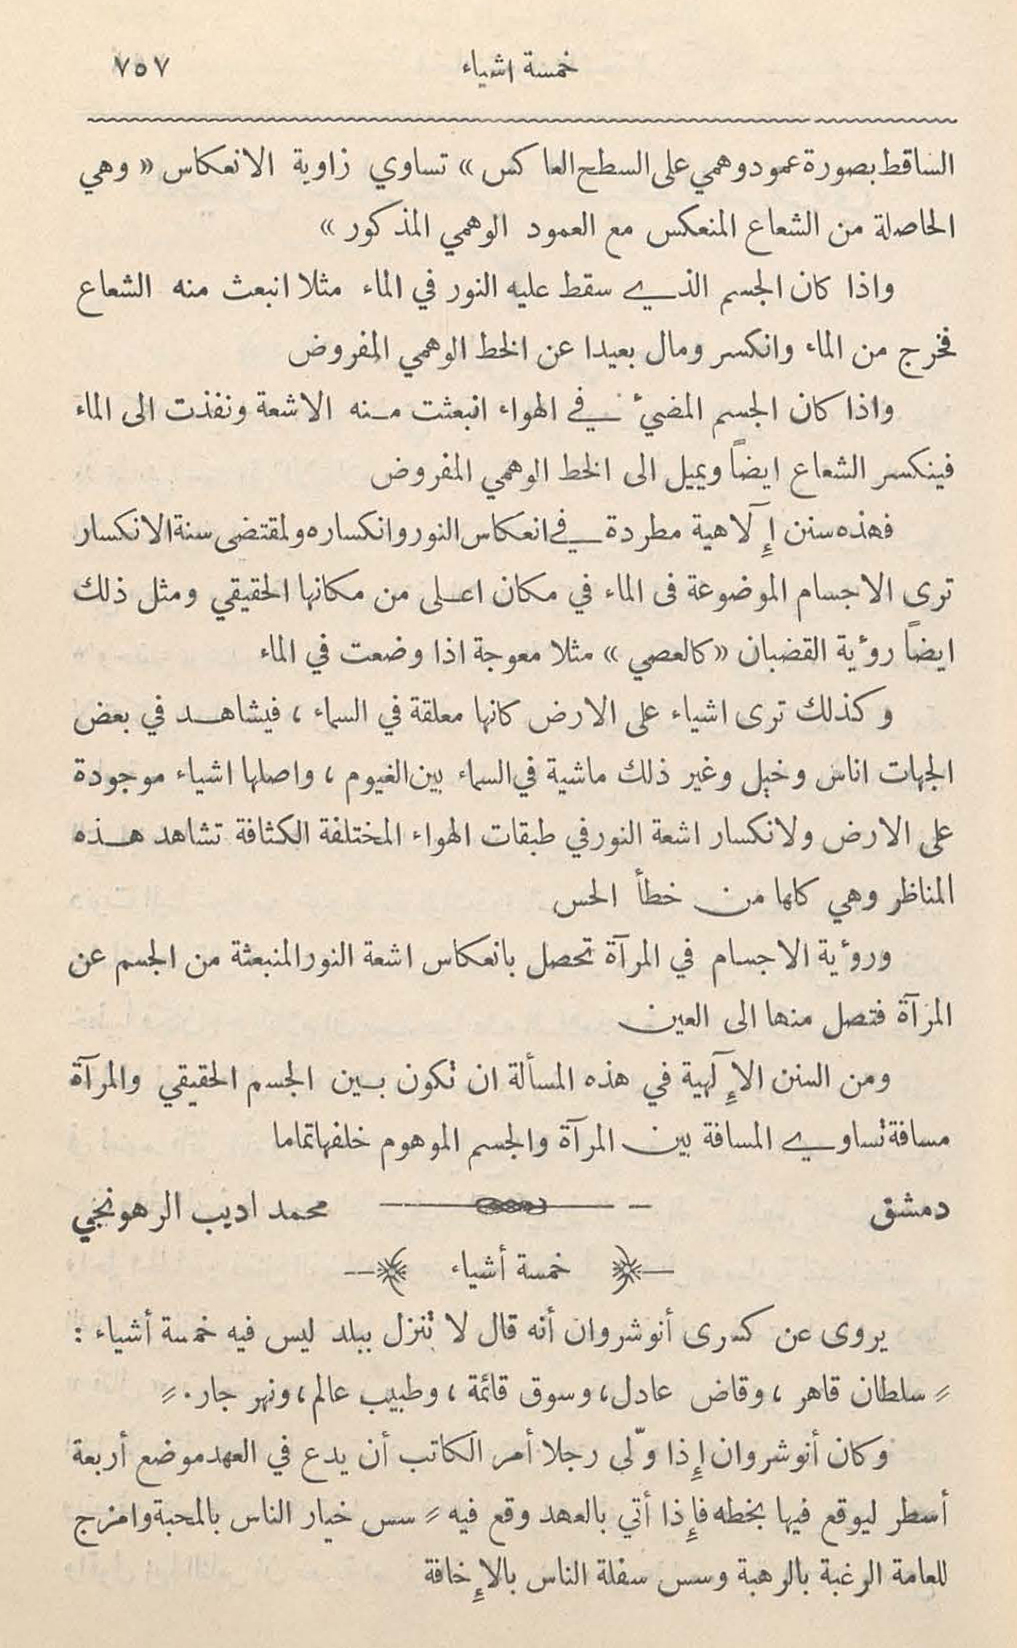 خمسة اشياء ٧٥٧
الساقط بصورة عمود وهمي على السطح العاكس » تساوي زاوية الانعكاس « وهي
الحاصلة من الشعاع المنعكس مع العمود الوهمي المذكور »
واذا كان الجسم الذي سقط عليه النور في الماء مثلا انبعث منه الشعاع
فخرج من الماء وانكسر ومال بعيدا عن الخط الوهمي المفروض
واذا كان الجسم المضيء في الهواء انبعثت منه الاشعة ونفذت الى الماء
فينكسر الشعاع ايضاً ويميل الى الخط الوهمي المفروض
فهذه سنن إلاهية مطردة في انعكاس النور وانكساره ولمقتضى سنة الانكسار
ترى الاجسام الموضوعة فى الماء في مكان اعلى من مكانها الحقيقي ومثل ذلك
ايضاً رؤية القضبان « كالعصي » مثلا معوجة اذا وضعت في الماء
وكذلك ترى اشياء على الارض كانها معلقة في السماء ، فيشاهد في بعض
الجهات اناس وخيل وغير ذلك ماشية في السماء بين الغيوم ، واصلها اشياء موجودة
على الارض ولانكسار اشعة النور في طبقات الهواء المختلفة الكثافة تشاهد هذه
المناظر وهي كلها من خطأ الحس
ورؤية الاجسام في المرآة تحصل بانعكاس اشعة النور المنبعثة من الجسم عن
المرآة فتصل منها الى العين
ومن السنن الإلهية في هذه المسألة ان تكون بين الجسم الحقيقي والمرآة
مسافة تساوي المسافة بين المرآة والجسم الموهوم خلفها تماما
دمشق محمد اديب الرهونجي
خمسة أشياء
يروى عن كسرى أنوشروان أنه قال لا تنزل ببلد ليس فيه خمسة أشياء :
〃 سلطان قاهر ، وقاض عادل ، وسوق قائمة ، وطبيب عالم ، ونهر جار . 〃
وكان أنوشروان إذا ولّى رجلا أمر الكاتب أن يدع في العهد موضع أربعة
أسطر ليوقع فيها بخطه فإذا أتي بالعهد وقع فيه 〃 سس خيار الناس بالمحبة وامزج
للعامة الرغبة بالرهبة وسس سفلة الناس بالإخافة